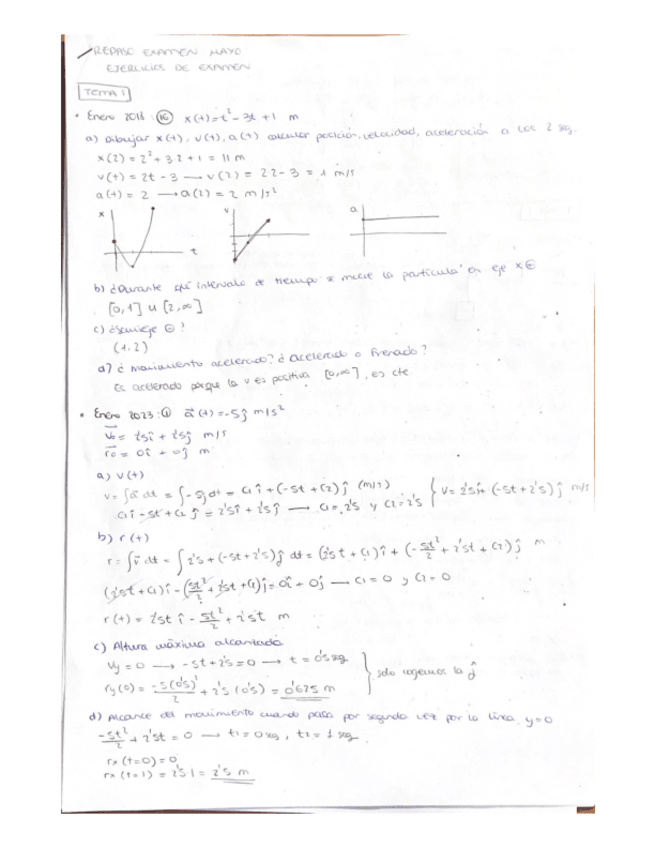 REPASO EXAMEN MAYO
EJERCICIOS DE EXAMEN
TEMA 1
• Enero 2018: (1C) x(t)=t²-3t+1 m
a) Dibujar x(t), v(t), a(t) calcular posición, velocidad, aceleración a los 2 seg.
x(2) = 2²+3·2+1 = 11 m
v(t) = 2t-3 → v(2) = 2·2-3 = 1 m/s
a(t) = 2 → a(2) = 2 m/s²
x t
v
a
b) ¿Durante qué intervalo de tiempo se mueve la partícula en eje x ⊕
[0,1] u [2,∞]
c) ¿Semieje ⊖?
(1,2)
d) ¿movimiento acelerado? ¿Acelerado o frenado?
Es acelerado porque la v es positiva [0,∞], es cte
• Enero 2023: ① a⃗(t) = -5ĵ m/s²
v₀ = 2'5î + 2'5ĵ m/s
r₀ = 0î + 0ĵ m
a) v(t)
v = ∫a⃗ dt = ∫-5ĵ dt = C₁ î + (-5t + C₂) ĵ (m/s)
C₁î - 5t + C₂ ĵ = 2'5î + 2'5ĵ → C₁ = 2'5 y C₂ = 2'5 } v = 2'5î + (-5t + 2'5) ĵ m/s
b) r(t)
r = ∫v⃗ dt = ∫2'5 + (-5t + 2'5)ĵ dt = (2'5t + C₁) î + (-5t²/2 + 2'5t + C₂) ĵ m
(2'5t + C₁)î - (5t²/2 + 2'5t + C₂)ĵ = 0î + 0ĵ — C₁ = 0 y C₂ = 0
r(t) = 2'5t î - 5t²/2 + 2'5t m
c) Altura máxima alcanzada
Vy = 0 → -5t + 2'5 = 0 → t = 0'5 sg
ry(0) = -5(0'5)²/2 + 2'5 (0'5) = 0'625 m } solo cogemos la ĵ
d) Alcance del movimiento cuando pasa por segunda vez por la línea y=0
-5t²/2 + 2'5t = 0 → t₁ = 0 sg, t₂ = 1 sg.
rx (t=0) = 0
rx (t=1) = 2'5·1 = 2'5 m